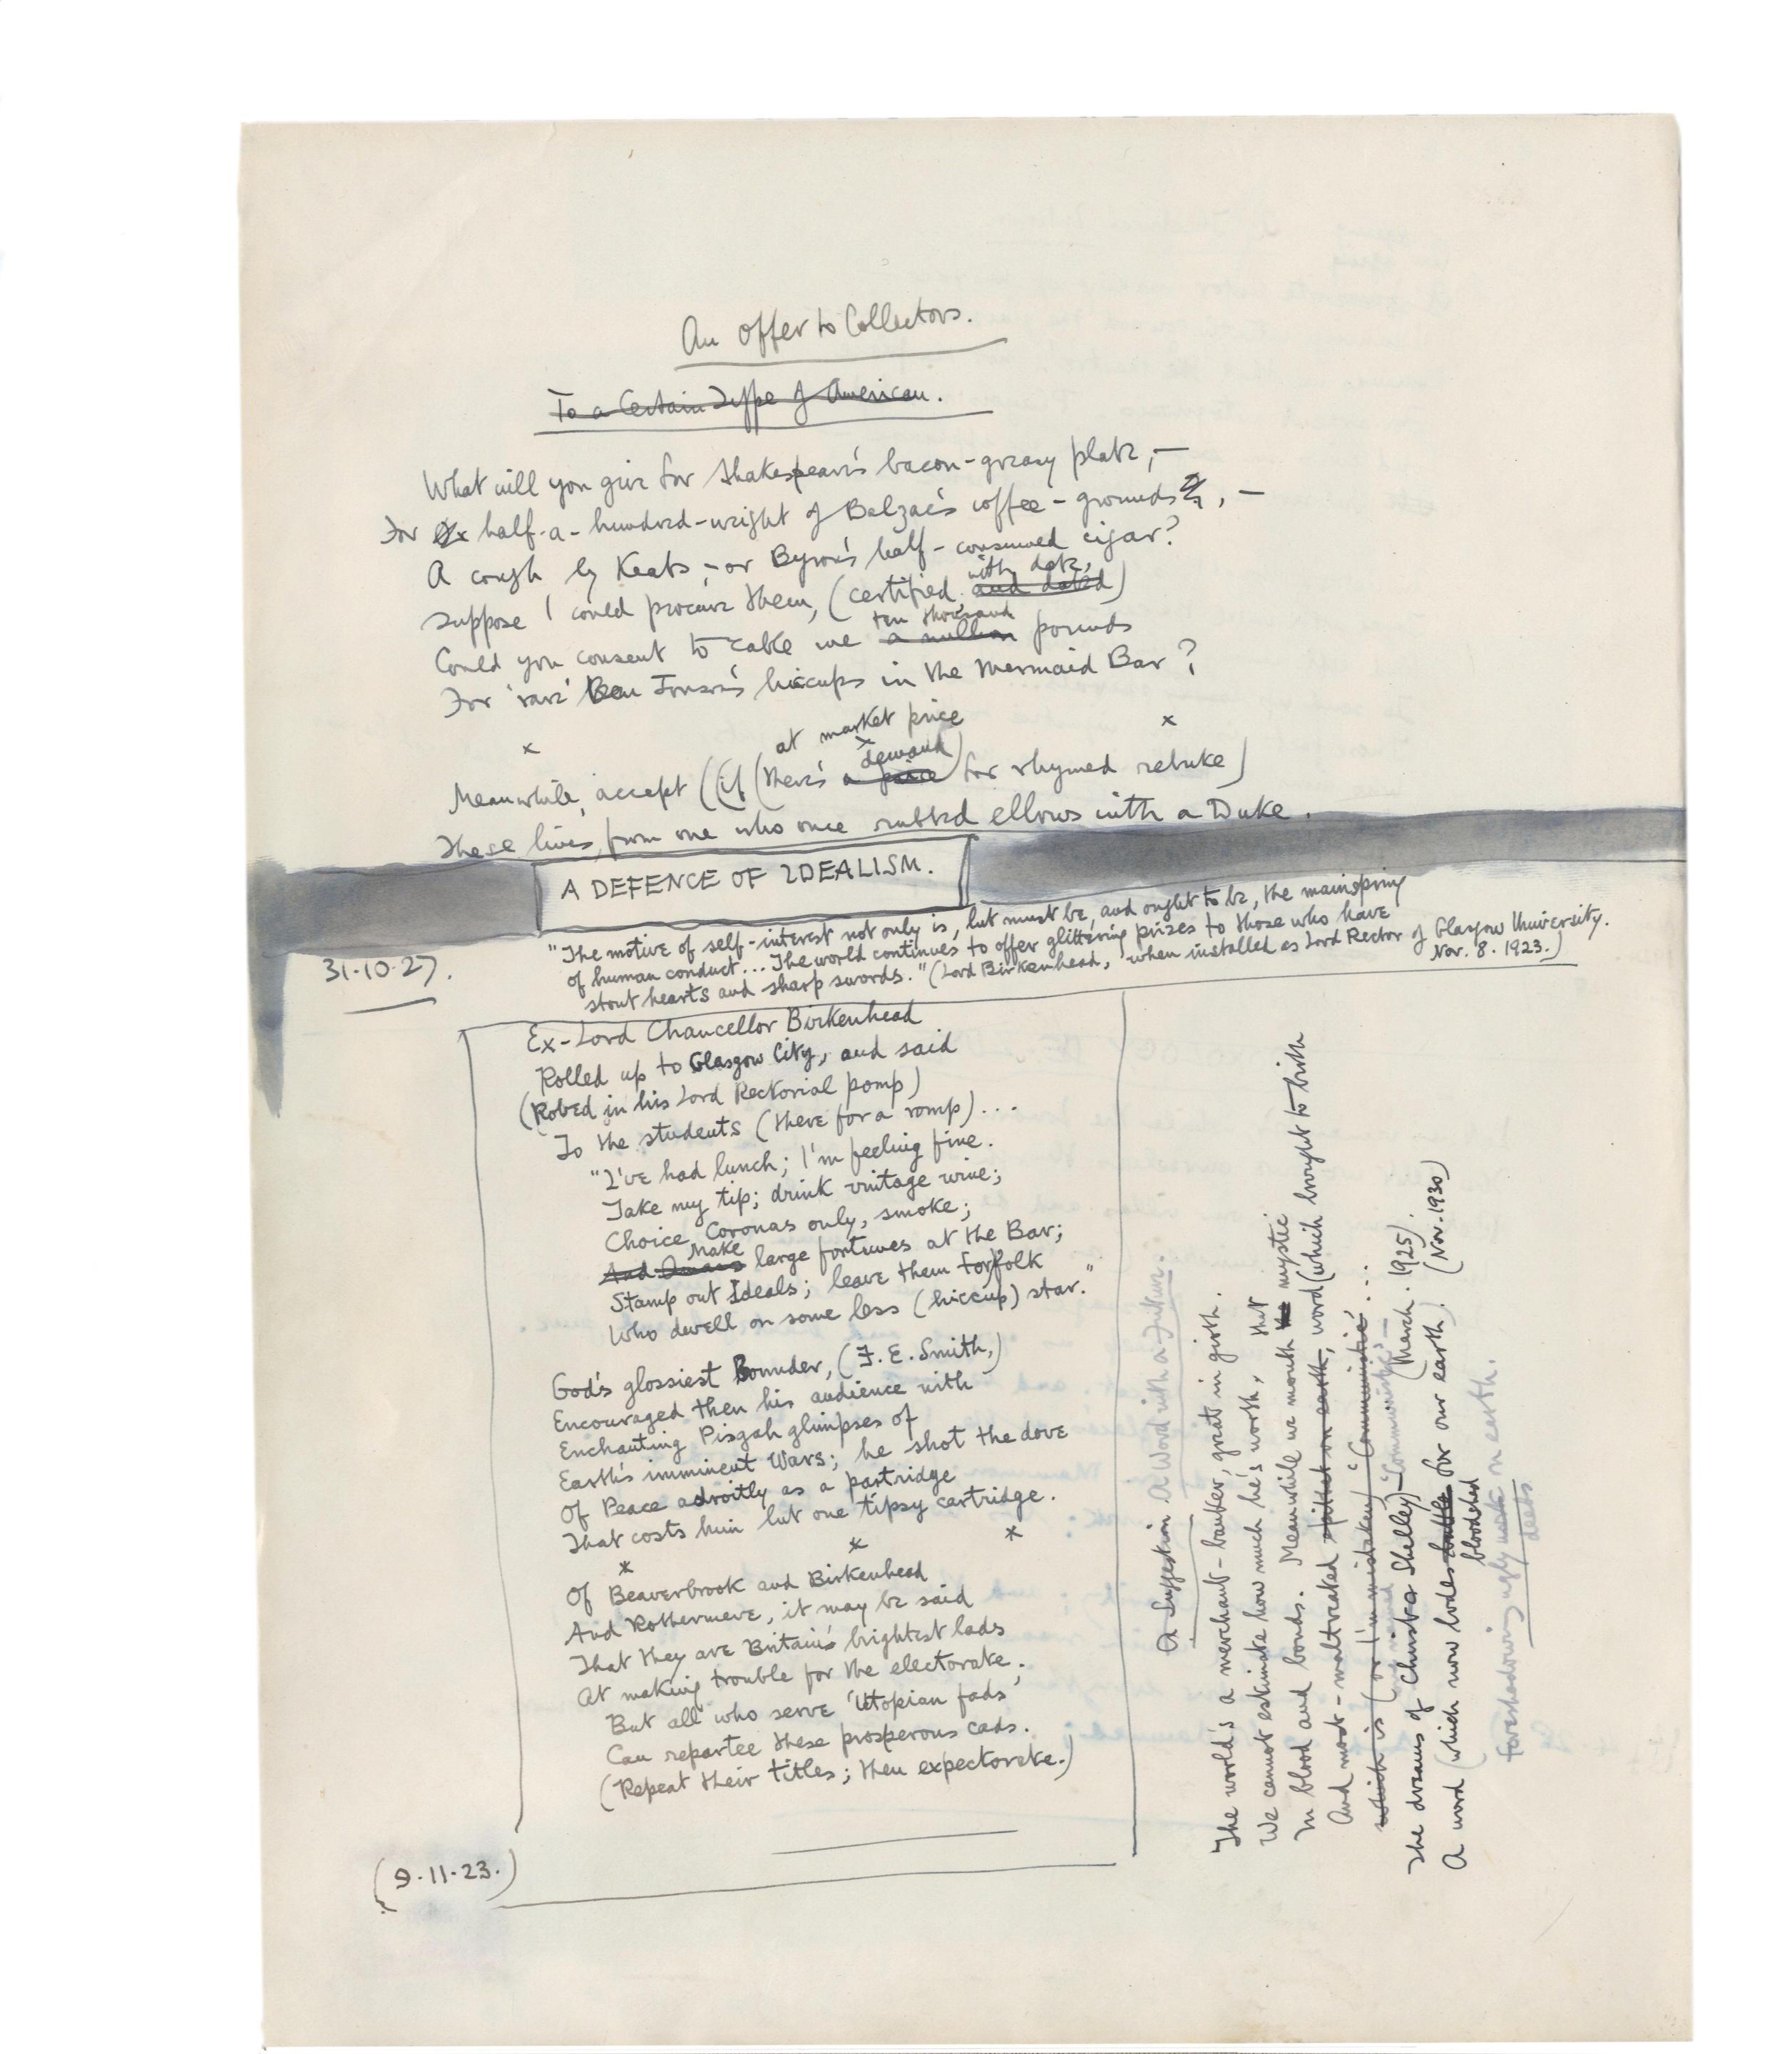 An Offer to Collectors.
To a Certain Type of American.
What will you give for Shakespeare's bacon-greasy plate, —
For half-a-hundred-weight of Balzac's coffee-grounds, —
A cough by Keats, – or Byron's half-consumed cigar?
with date,
Suppose I could procure them, (certified and dated)
ten thousand
Could you consent to cable me a million pounds
For 'rare' Ben Jonson's hiccups in the Mermaid Bar?
x x
at market price
x
demand
Meanwhile, accept ((if (there's a price) for rhymed rebuke)
These lines, from one who once rubbed elbows with a Duke.
A DEFENCE OF IDEALISM.
31-10-27.
"The motive of self-interest not only is, but must be, and ought to be, the mainspring
of human conduct... The world continues to offer glittering prizes to those who have
stout hearts and sharp swords." (Lord Birkenhead, when installed as Lord Rector of Glasgow University.
Nov. 8. 1923.)
Ex-Lord Chancellor Birkenhead
Rolled up to Glasgow City, and said
(Robed in his Lord Rectorial pomp)
To the students (there for a romp)...
"I've had lunch; I'm feeling fine.
Take my tip; drink vintage wine;
Choice Coronas only, smoke;
Make
And large fortunes at the Bar;
Stamp out Ideals; leave them for folk
Who dwell on some less (hiccup) star."
God's glossiest Bounder, (F. E. Smith,)
Encouraged then his audience with
Enchanting Pisgah glimpses of
Earth's imminent Wars; he shot the dove
Of Peace adroitly as a partridge
That costs him but one tipsy cartridge.
* * *
Of Beaverbrook and Birkenhead
And Rothermere, it may be said
That they are Britain's brightest lads
At making trouble for the electorate.
But all who serve 'Utopian fads'
Can repartee these prosperous cads.
(Repeat their titles; then expectorate.)
(9.11.23.)
A Suggestion. A Word with a Future.
The world's a merchant-banker, great in girth.
We cannot estimate how much he's worth, that
In blood and bonds. Meanwhile we mouth the mystic
And most-maltreated on earth, word (which brought to birth
which is (or I'm mistaken) "Communistic"...
"Communistic,"—
The dreams of Christ & Shelley) (March. 1925).
A word (which now bodes battle for our earth.) (Nov. 1930)
bloodshed
foreshadowing ugly work on earth.
deeds